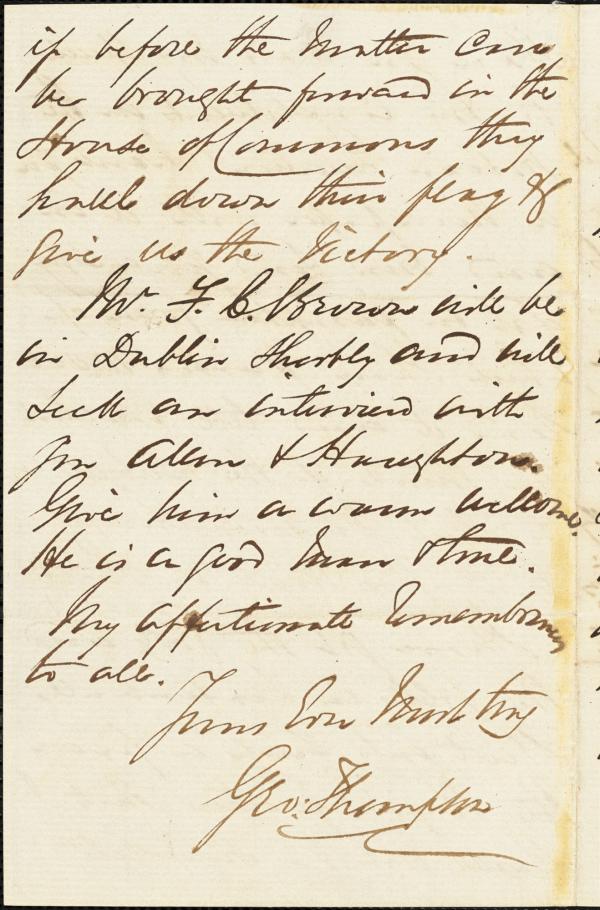 if before the matter can
be brought forward in the
House of Commons they
haul down their flag &
give us the victory.
Mr. F. C. Brown will be
in Dublin shortly and will
seek an interview with
you Allen & Haughton.
Give him a warm welcome.
He is a good man & true.
My affectionate remembrances
to all.
Yours Ever Most truly
Geo: Thompson